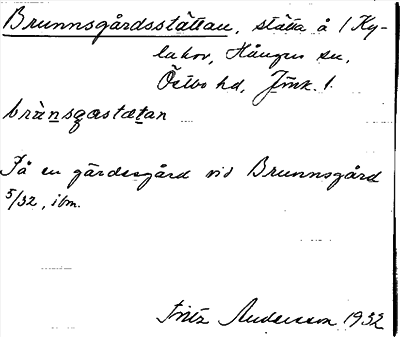 Brunnsgårdsstättan, stätta å 1 Ky-
lahov, Hångers sn,
Östbo hd, Jönk. l.
brùnsgastætan
På en gärdesgård vid Brunnsgård
5/32, ibm.
Fritz Andersson 1932